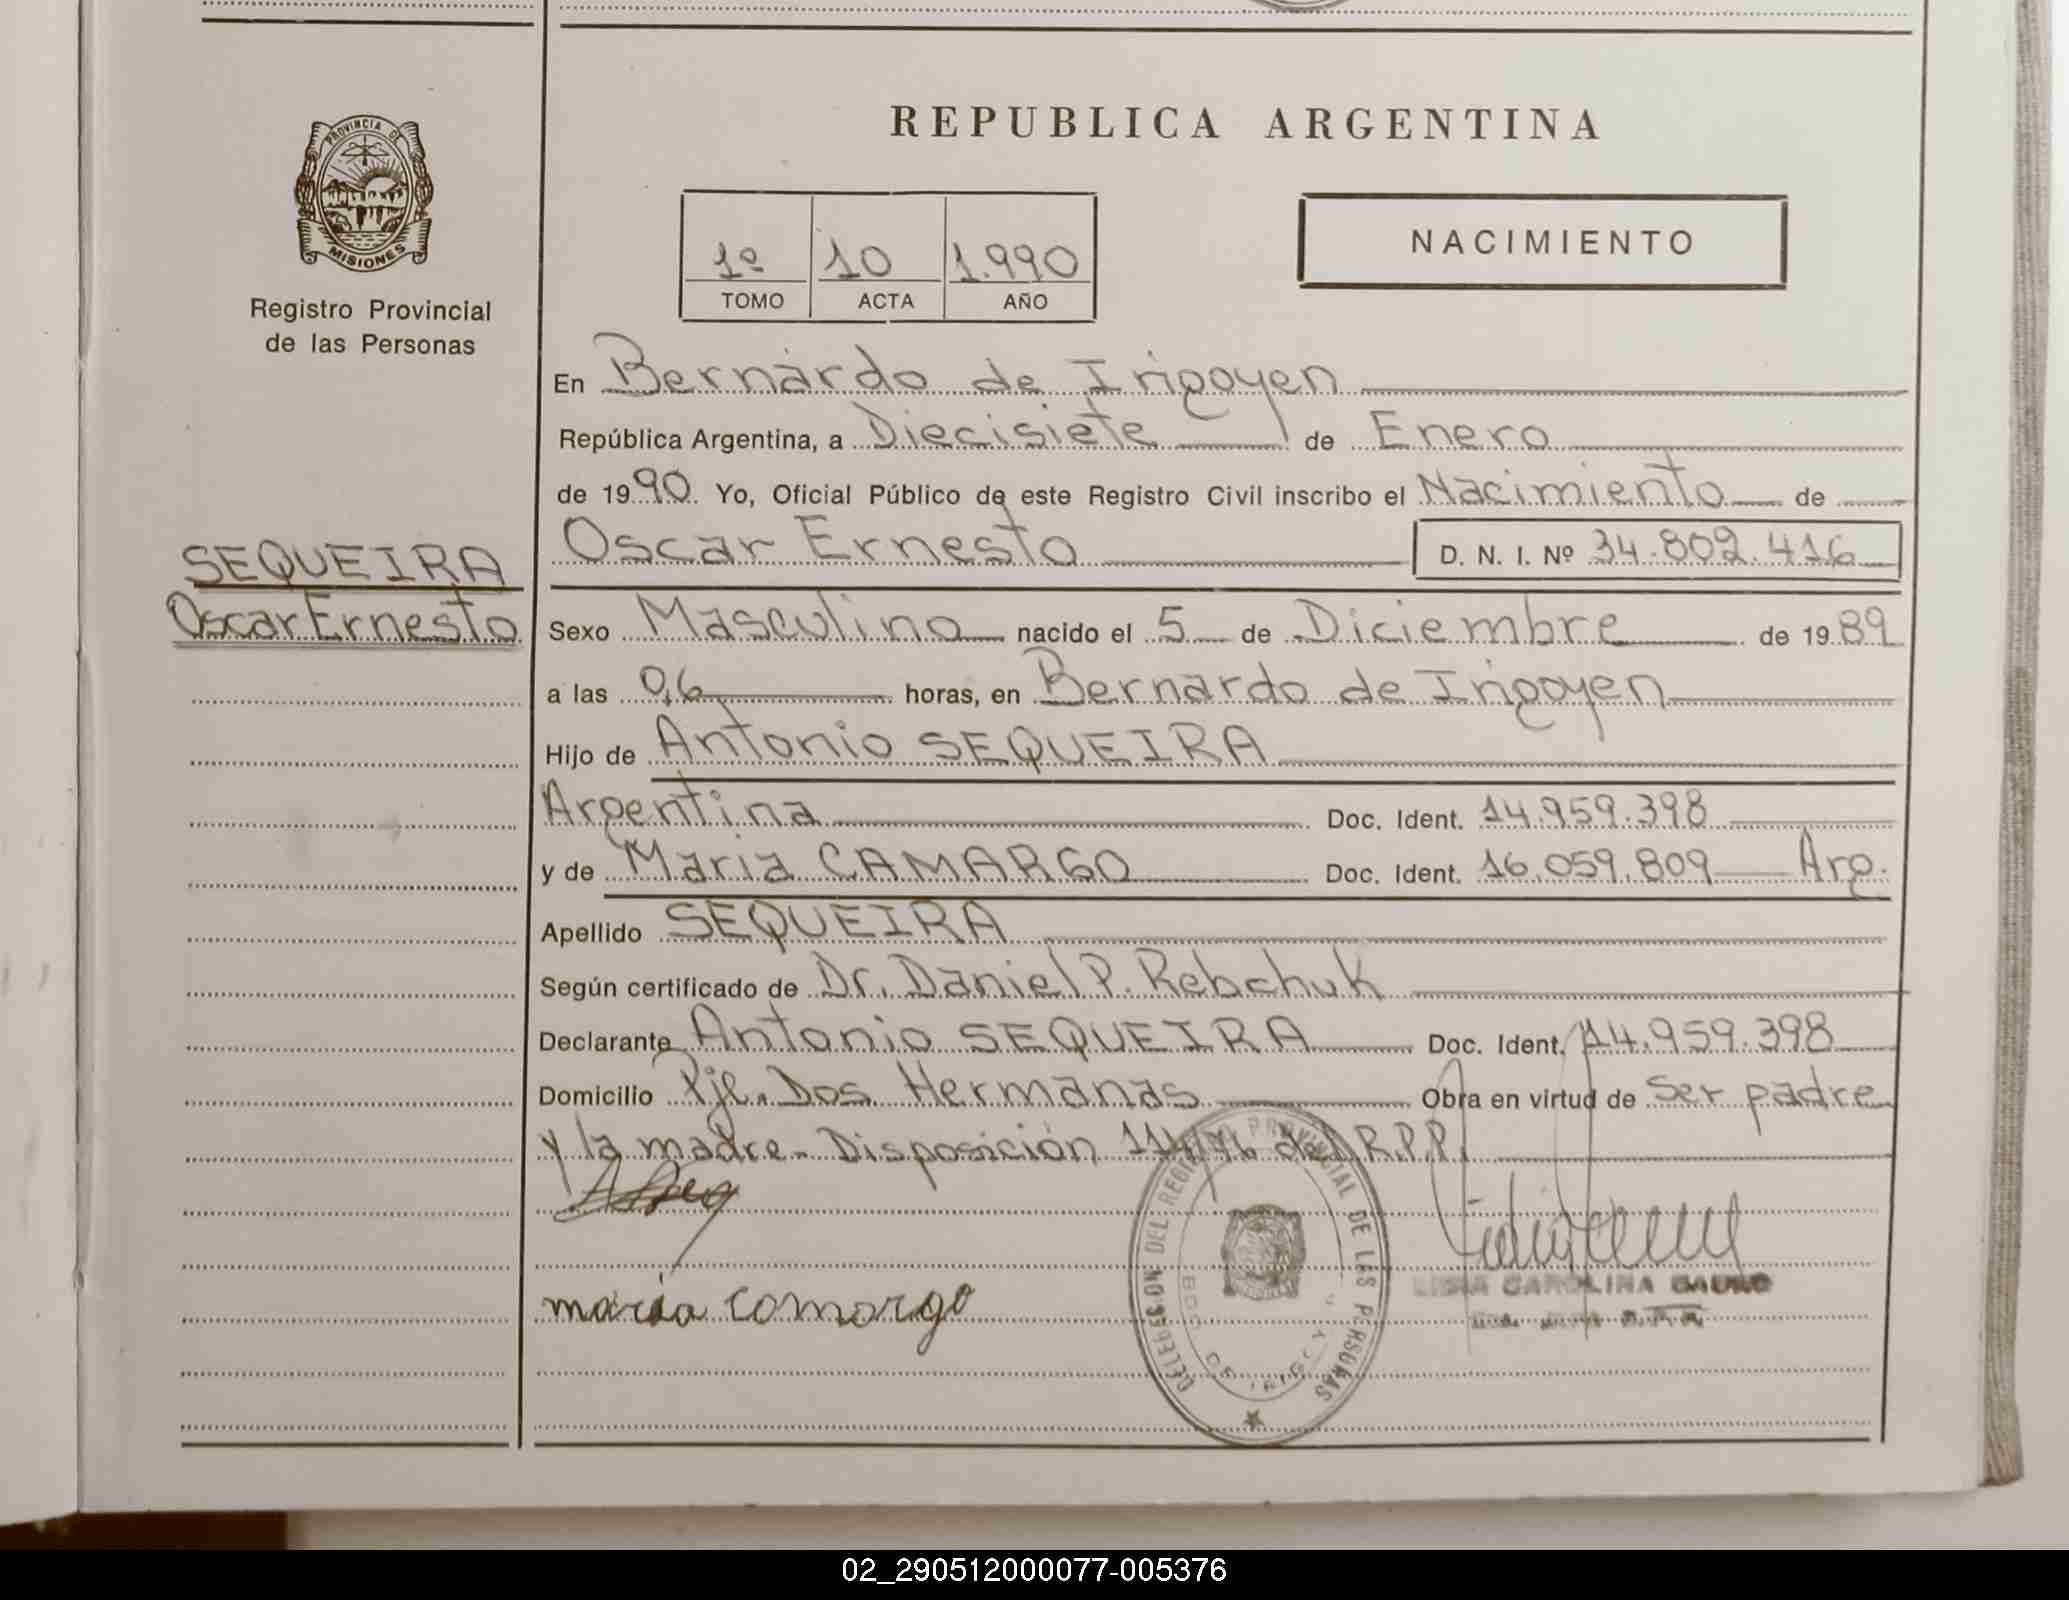 REPUBLICA ARGENTINA
PROVINCIA DE
MISIONES
Registro Provincial
de las Personas
1º 10 1.990
TOMO ACTA AÑO
NACIMIENTO
En Bernardo de Irigoyen
República Argentina, a Diecisiete de Enero
de 1990 Yo, Oficial Público de este Registro Civil inscribo el Nacimiento de
SEQUEIRA
Oscar Ernesto
Oscar Ernesto D. N. I. Nº 34.802.416
Sexo Masculino nacido el 5 de Diciembre de 1989
a las 06 horas, en Bernardo de Irigoyen
Hijo de Antonio SEQUEIRA
Argentina Doc. Ident. 14.959.398
y de Maria CAMARGO Doc. Ident. 16.059.809 Arg.
Apellido SEQUEIRA
Según certificado de Dr. Daniel P. Rebchuk
Declarante Antonio SEQUEIRA Doc. Ident. 14.959.398
Domicilio Pje. Dos Hermanas Obra en virtud de ser padre
y la madre. Disposición del R.P.P.
maria comargo
DELEGACION DEL REGISTRO PROVINCIAL DE LAS PERSONAS
BDO DE IRIGOYEN
CAROLINA
02_290512000077-005376